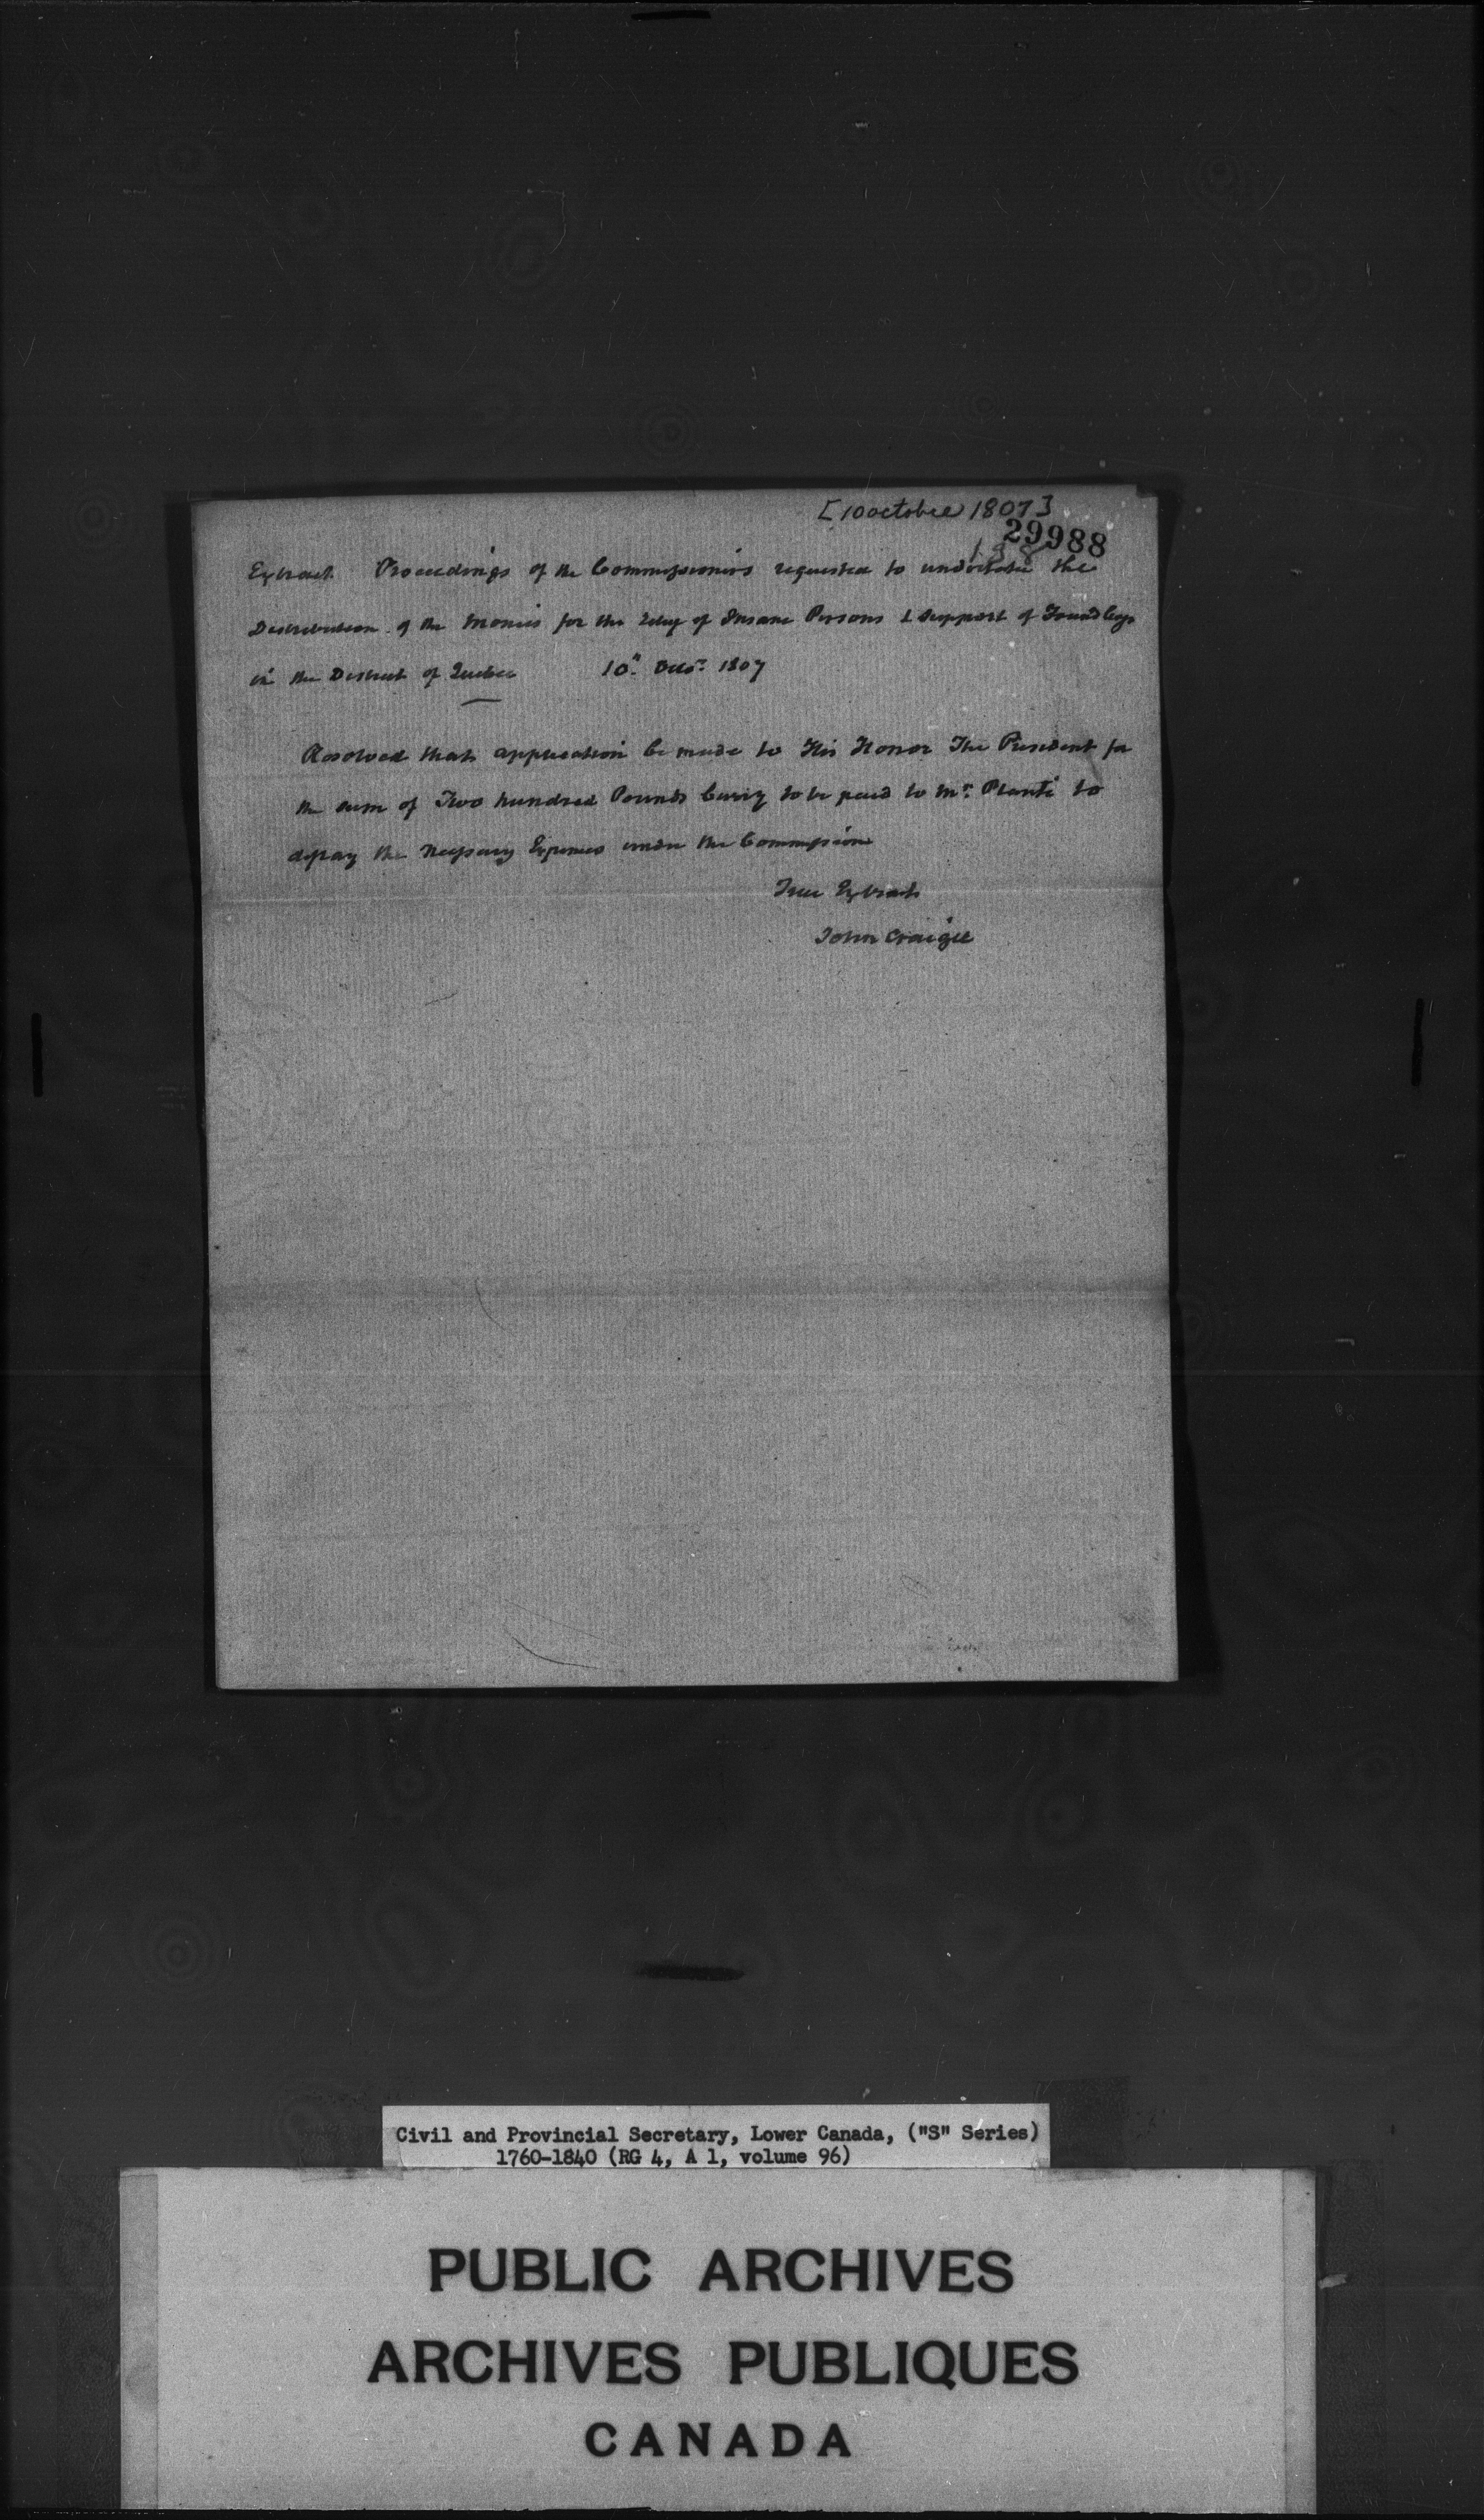 [10 octobre 1807]
29988
138
Extract Proceedings of the Commissioners requested to undertake the
Distribution of the Monies for the Relief of Insane Persons & Support of Foundlings
in the District of Quebec 10th Octor. 1807
Resolved that application be made to His Honor The President for
the sum of Two hundred Pounds Curcy to be paid to Mr. Planté to
defray the Necessary Expences under the Commission
True Extract
John Craigie
Civil and Provincial Secretary, Lower Canada, ("S" Series)
1760-1840 (RG 4, A 1, volume 96)
PUBLIC ARCHIVES
ARCHIVES PUBLIQUES
CANADA